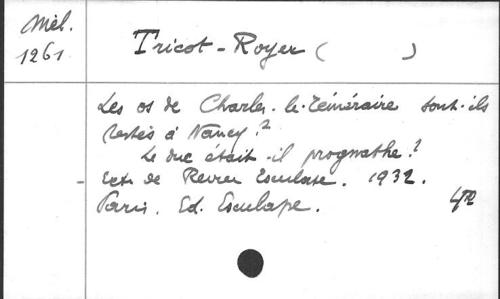 Mél.
1261
Tricot-Royer (          )
Les os de Charles-le-Téméraire sont-ils
restés à Nancy?
Le duc était-il prognathe?
Extr. de Revue Esculape. 1932.
Paris. Ed. Esculape.